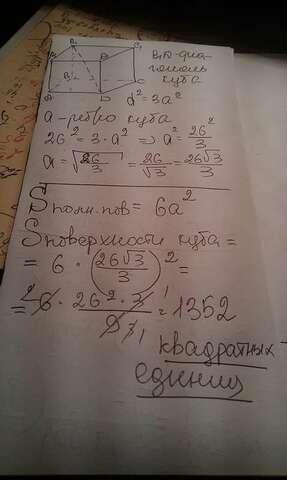 B₁D-диа-
гональ
куба
d² = 3a²
a - ребро куба
26² = 3 · a² ⇒ a² = 26²/3
a = √26/3 = 26/√3 = 26√3/3
Sполн.пов = 6a²
Sповерхности куба =
= 6 · (26√3/3)² =
= 6 · 26² · 3/9 = 1352
квадратных
единиц